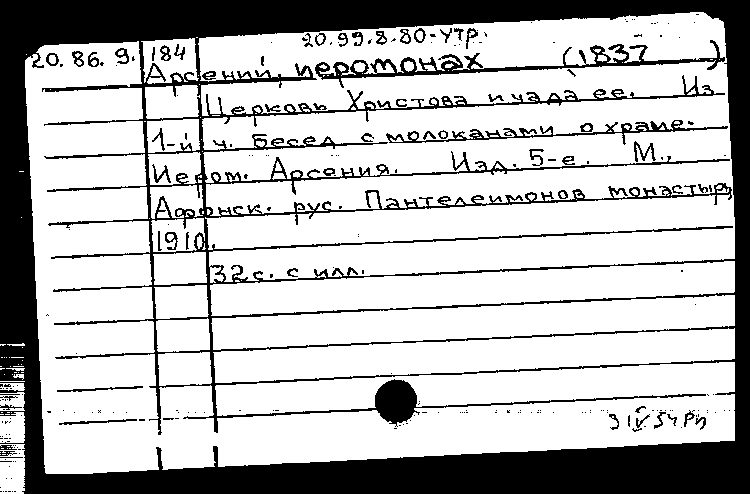 20.99.8.80-утр.
20.86.9. 184
Арсений, иеромонах (1837 )
Церковь Христова и чада ее. Из
1-й ч. бесед с молоканами о храме.
Иером. Арсения. Изд. 5-е. М.,
Афонск. рус. Пантелеимонов монастырь,
1910.
32 с. с илл.